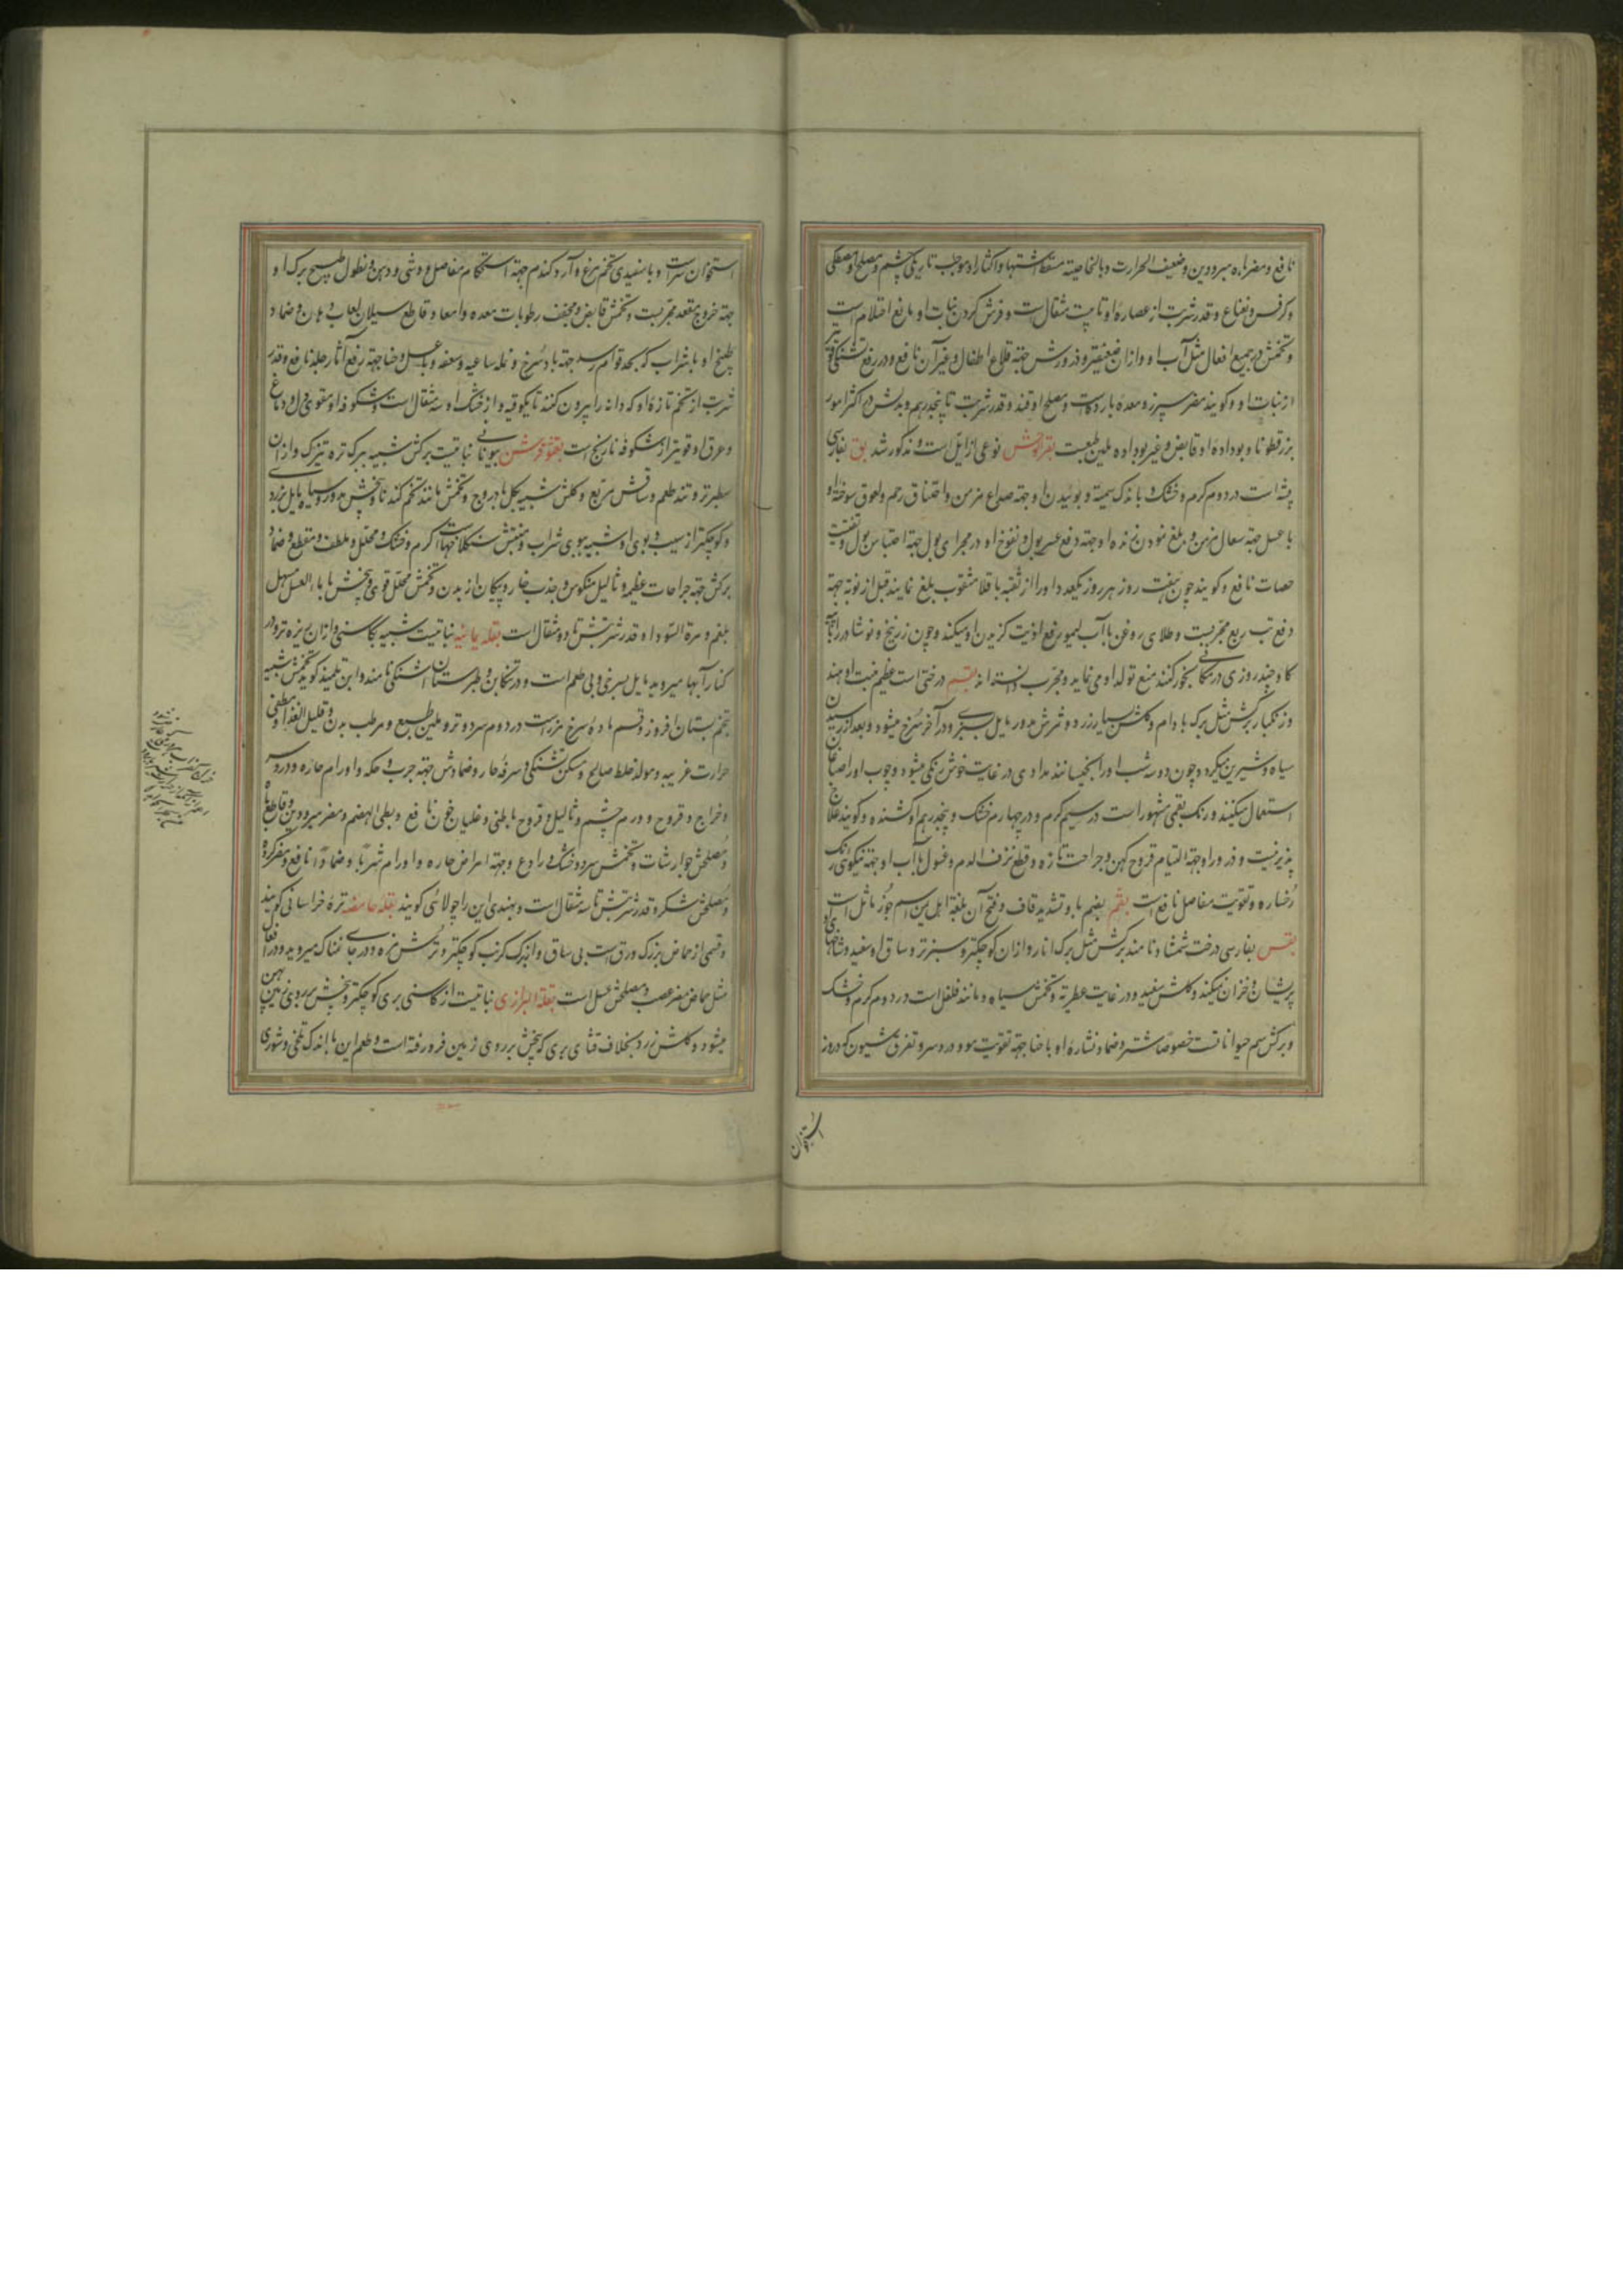 نافع و مضر اوه مبرودین و ضعیف الحرارت و بالخاصیة مسقط اشتها و اکثار او موجب تاریکی چشم و مصلح او مصطکی
و کرفس و نعناع و قدر شربت از عصاره او تا بیست مثقال است و فرش کردن نبات او مانع احتلام است
و تخمش در جمیع افعال مثل آب او و ازان ضعیفتر و ذرورش جهة قلاع اطفال و غیر آن نافع و در رفع تشنگی قویتر
از نبات او و گویند مضر سپرز و معده بارد است و مصلح او قند و قدر شربت تا پنجدرهم و بدلش در اکثر امور
بزرقطونا و بو داده او قابض و غیر بو داده ملین طبعست بقر الوحش نوعی از ایل است و مذکور شد بق بفارسی
پشه است در دوم گرم و خشک و با اندک سمیة و بوئیدن او جهة صداع مزمن و اختناق رحم و لعوق سوخته او
با عسل جهة سعال مزمن و بلع نمودن زنده او جهة دفع عسر بول و نفوخ او در مجرای بول جهة احتباس بول و تفتیت
حصات نافع و گویند چون هفت روز هر روز یکعدد او را از ثقبه باقلا مثقوب بلع نمایند قبل از نوبه جهة
دفع تب ربع مجربست و طلای روغن با آب لیمو رفع اذیت گزیدن او میکند و چون زرنیخ و نوشادر را با
گاو چند روزی در مکانی بخور کنند منع تولد او می نماید و مجرب دانسته اند بقم درختی است عظیم منبت او هند
و زنگبار برگش مثل برگ بادام و گلش بسیار زرد و ثمرش مدور مایل بسبزی و در آخر سرخ میشود و بعد از رسیدن
سیاه و شیرین میگردد و چون دو سه شب او را بخیسانند مدادی در غایت خوش رنگی میشود و چوب او را صباغان
استعمال میکنند و رنگ بقمی مشهور است در سیم گرم و در چهارم خشک و پنجدرهم او کشنده و گویند علاج
پذیر نیست و ذرور او جهة التیام قروح کهن و جراحت تازه و قطع نزف الدم و غسول بآب او جهة نیکوئی رنگ
رخساره و تقویت مفاصل نافع است بقم بضم با و تشدید قاف و فتح آن بلغة اهل یمن اسم جوز ماثل است
بقس بفارسی درخت شمشاد نامند برگش مثل برگ انار و ازان کوچکتر و سبزتر و ساق او سفید و شاخهای او
پریشان و خزان نمیکند و گلش سفید و در غایت عطریه و تخمش سیاه و مانند فلفل است در دوم گرم و خشک
و برگش سم حیواناتست خصوصا شتر و ضماد نشاره او با حنا جهة تقویت مو و درد سر و تفرق شئون که دروز
استخوان
استخوان سر است و با سفیدی تخم مرغ و آرد گندم جهة استحکام مفاصل و وثی و وهن و نطول طبیخ برگ او
جهة خروج مقعد مجربست و تخمش قابض و مجفف رطوبات معده و امعا و قاطع سیلان لعاب دهان و ضماد
طبیخ او با شراب که بحد قوام رسد جهة باد سرخ و نمله ساعیه و سعفه و با عسل و حنا جهة رفع آثار جلد نافع و قدر
شربت از تخم تازه او که دانه را بیرون کنند تا یکوقیه و از خشک او سه مثقال است و شکوفه او مقوی دل و دماغ
و عرق او قویتر از شکوفه نارنج است بقنوقرشن بیونانی نباتیست برگش شبیه ببرگ تره تیزک و ازان
سطبرتر و تند طعم و ساقش مربع و گلش شبیه بگل بادروج و تخمش مانند تخم گندنا و بیخش مدور و سیاه مایل بزردی
و کوچکتر از سیب و بوی او شبیه ببوی شراب و منبتش سنگلاخهاست گرم و خشک و محلل و ملطف و مقطع و ضماد
برگش جهة جراحات عظیمه و ثالیل منکوس و جذب خار و پیکان از بدن و تخمش محلل قوی و بیخش با ماء العسل مسهل
بلغم و مرة السودا و قدر شربتش تا دو مثقال است بقله یمانیه نباتیست شبیه بکاسنی و ازان ریزه تر و در
کنار آبها میروید مایل بسرخی و بی طعم است و در تنکابن و طبرستان اشنگی نامند و ابن تلمیذ گوید تخمش شبیه
بتخم بستان افروز و قسم ماده سرخ مرز است در دوم سرد و تر و ملین طبع و مرطب بدن و قلیل الغذا و مطفی
حرارت غریبه و مولد خلط صالح و مسکن تشنگی و سرفه حار و ضمادش جهة جرب و حکه و اورام حاره و درد سر
و خراج و قروح و ورم چشم و ثالیل و قروح باطنی و غلیان خون نافع و بطی الهضم و مضر مبرودین و قاطع باه
و مصلحش جوارشات و تخمش سرد و خشک و رادع و جهة امراض حاره و اورام شربا و ضمادا نافع و مضر گرده
و مصلحش شکر و قدر شربتش تا سه مثقال است و بهندی این را چولائی گویند بقله حامضه تره خراسانی گویند
و قسمی از حماض بزرگ ورق است بی ساق و از برگ کرنب کوچکتر و ترش مزه و در جای نمناک میروید و در افعال
مثل حماض مضر عصب و مصلحش عسل است بقلة البرازی نباتیست از کاسنی بری کوچکتر و بیخش بر روی زمین پهن
میشود و گلش زرد بخلاف قثای بری که بیخش بر روی زمین فرو رفته است و طعم این با اندک تلخی و شوری